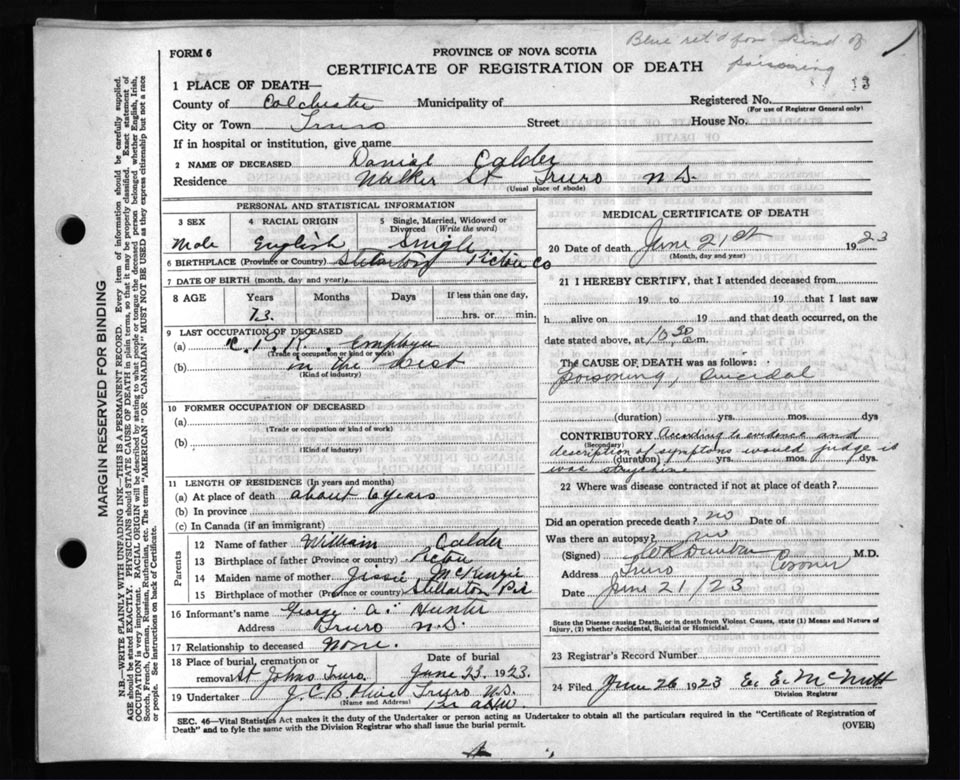 Blue ret'd for kind of
poisoning
FORM 6
PROVINCE OF NOVA SCOTIA
CERTIFICATE OF REGISTRATION OF DEATH
1 PLACE OF DEATH—
County of Colchester Municipality of
Registered No.
(For use of Registrar General only)
City or Town Truro Street House No.
If in hospital or institution, give name
2 NAME OF DECEASED Daniel Calder
Residence Walker St Truro N.S.
(Usual place of abode)
PERSONAL AND STATISTICAL INFORMATION
3 SEX
Male
4 RACIAL ORIGIN
English
5 Single, Married, Widowed or Divorced (Write the word)
Single
6 BIRTHPLACE (Province or Country) Stellarton Pictou Co
7 DATE OF BIRTH (month, day and year)
8 AGE Years Months Days If less than one day,
73 hrs. or min.
9 LAST OCCUPATION OF DECEASED
(a) C.P.R. Employee
(Trade or occupation or kind or work)
(b) in the West
(Kind of industry)
10 FORMER OCCUPATION OF DECEASED
(a)
(Trade or occupation or kind of work)
(b)
(Kind of industry)
11 LENGTH OF RESIDENCE (In years and months)
(a) At place of death about 6 years
(b) In province
(c) In Canada (if an immigrant)
Parents
12 Name of father William Calder
13 Birthplace of father (Province or country) Pictou
14 Maiden name of mother Jessie McKenzie
15 Birthplace of mother (Province or country) Stellarton Pic
16 Informant's name George A. Hunter
Address Truro N.S.
17 Relationship to deceased None.
18 Place of burial, cremation or removal St Johns Truro.
Date of burial
June 23, 1923.
19 Undertaker J.C.B. Olive Truro N.S.
(Name and Address)
MEDICAL CERTIFICATE OF DEATH
20 Date of death June 21st 1923
(Month, day and year)
21 I HEREBY CERTIFY, that I attended deceased from
19 to 19 that I last saw
h alive on 19 and that death occurred, on
date stated above, at 10 30 a.m.
The CAUSE OF DEATH was as follows:
Poisoning, Suicidal
(duration) yrs. mos. dys
CONTRIBUTORY According to evidence and
(Secondary)
description of symptoms would judge it
(duration) yrs. mos. dys.
was strychnine
22 Where was disease contracted if not at place of death?
Did an operation precede death? no Date of
Was there an autopsy? no
(Signed) Dunbar M.D.
Address Truro Coroner
Date June 21/23
State the Disease causing Death, or in death from Violent Causes, state (1) Means and Nature of
Injury, (2) whether Accidental, Suicidal or Homicidal.
23 Registrar's Record Number
24 Filed June 26 1923 E. E. McNutt
Division Registrar
SEC. 46—Vital Statistics Act makes it the duty of the Undertaker or person acting as Undertaker to obtain all the particulars required in the "Certificate of Registration of
Death" and to fyle the same with the Division Registrar who shall issue the burial permit.
(OVER)
MARGIN RESERVED FOR BINDING
N.B.—WRITE PLAINLY WITH UNFADING INK—THIS IS A PERMANENT RECORD. Every item of information should be carefully supplied.
AGE should be stated EXACTLY. PHYSICIANS should STATE CAUSE OF DEATH in plain terms, so that it may be properly classified. Exact statement of
OCCUPATION is very important. RACIAL ORIGIN will be described by stating to what people or tongue the deceased person belonged whether English, Irish,
Scotch, French, German, Russian, Ruthenian, etc. The terms "AMERICAN" OR "CANADIAN" MUST NOT BE USED as they express citizenship but not a race
or people. See instructions on back of Certificate.